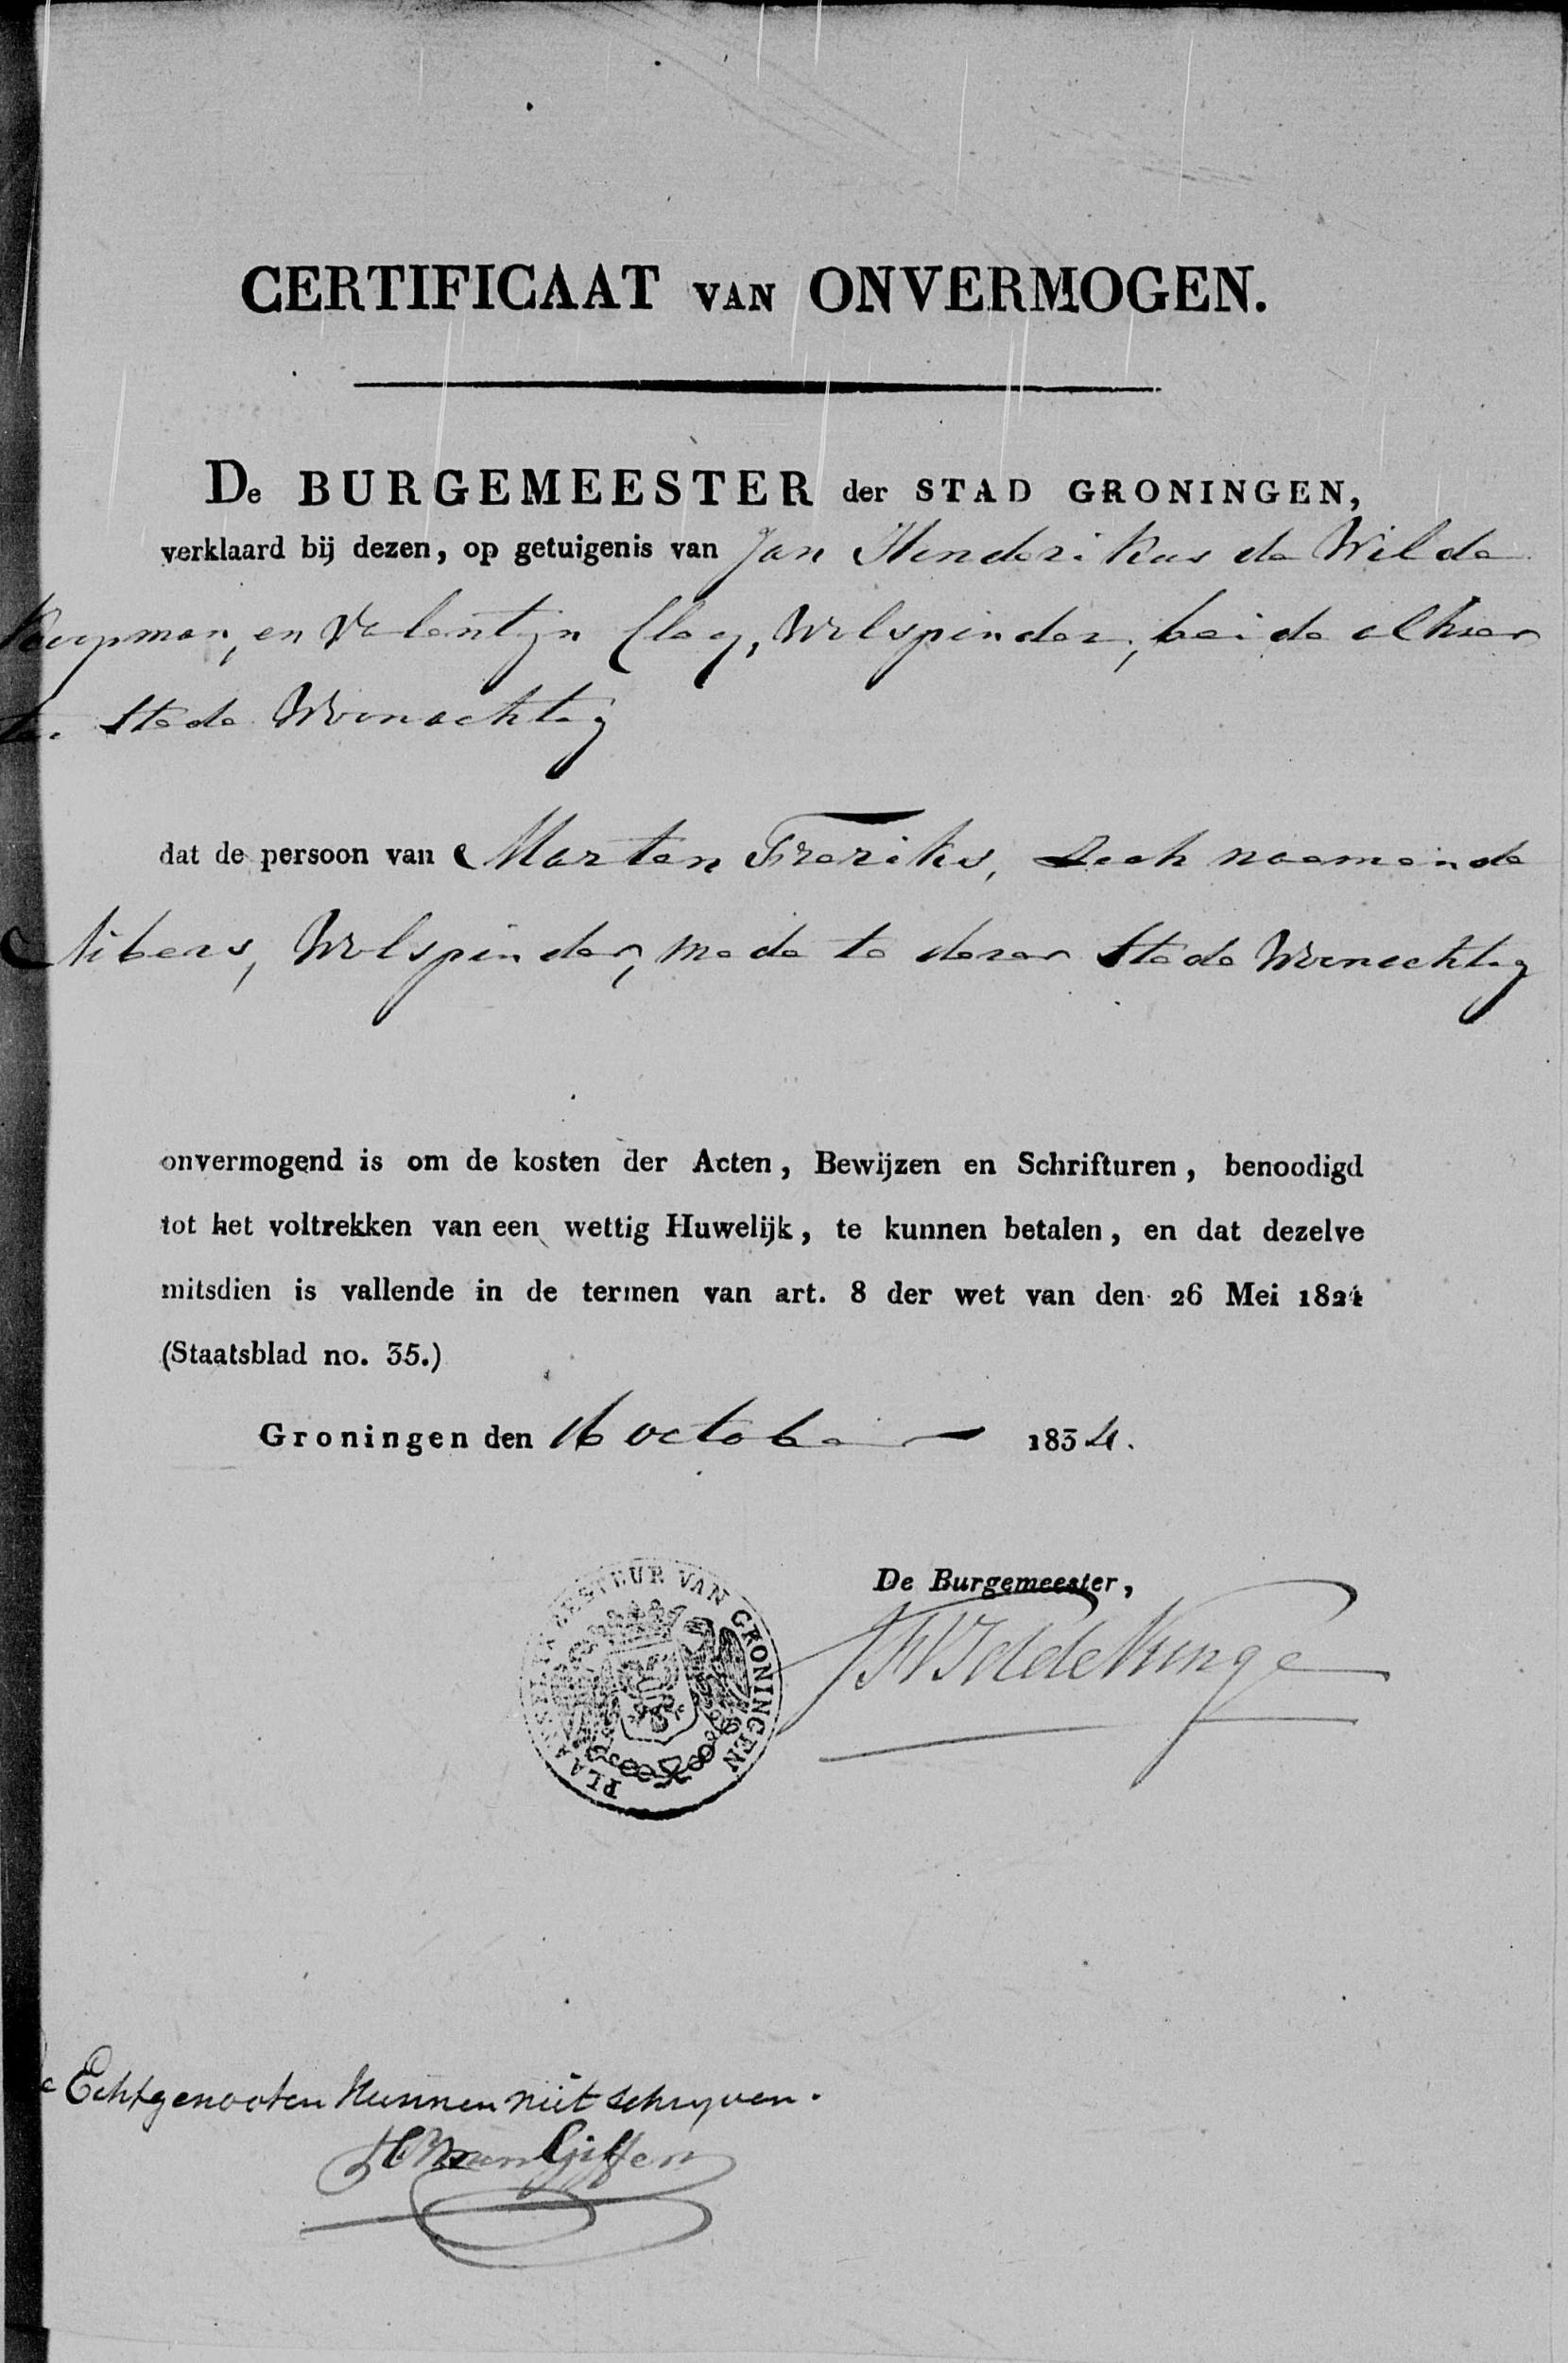 CERTIFICAAT VAN ONVERMOGEN.
De BURGEMEESTER der STAD GRONINGEN,
verklaard bij dezen, op getuigenis van Jan Henderikus de Wilde
Koopman, en Valentijn Clag, Wolspinder, beide alhier
ter Stede Woonachtig
dat de persoon van Marten Freriks, Zech noemende
Albers, Wolspinder, mede te dezer Stede Woonachtig
onvermogend is om de kosten der Acten, Bewijzen en Schrifturen, benoodigd
tot het voltrekken van een wettig Huwelijk, te kunnen betalen, en dat dezelve
mitsdien is vallende in de termen van art. 8 der wet van den 26 Mei 1824
(Staatsblad no. 35.)
Groningen den 16 october 1834.
De Burgemeester,
PLAATSELIJK BESTUUR VAN GRONINGEN
Iddekinge
de Echtgenooten kunnen niet schrijven.
van Giffen